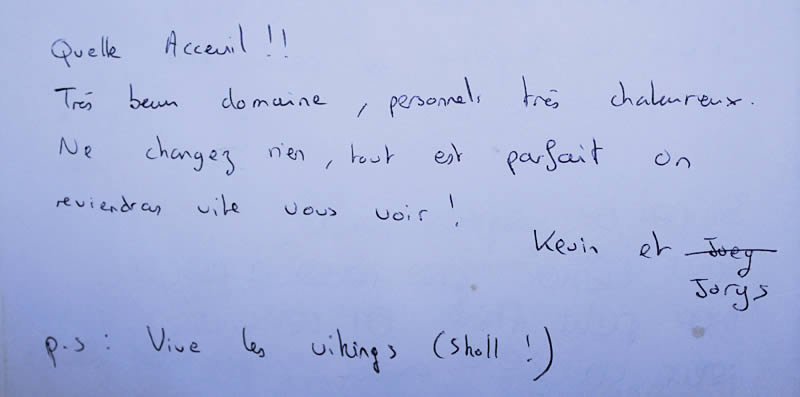 Quelle Acceuil !!
Très beau domaine, personnels très chaleureux.
Ne changez rien, tout est parfait on
reviendras vite vous voir !
Kevin et Joey
Jorys
p.s : Vive les vikings (Sholl !)